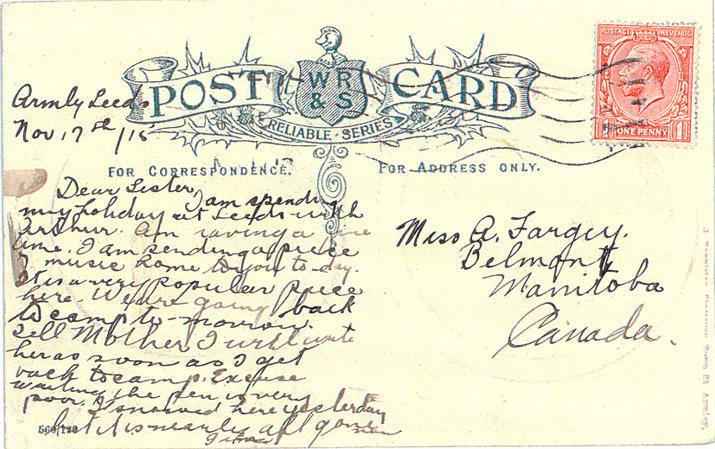 POST CARD
WR & S
RELIABLE · SERIES
POSTAGE REVENUE
ONE PENNY
FOR CORRESPONDENCE.
FOR ADDRESS ONLY.
Armly Leeds
Nov. 17th/15
Dear Sister, I am spending
my holiday at Leeds with
Arthur. Am having a fine
time. I am sending a piece
of music home to you to-day.
It is a very popular piece
here. We are going back
to camp to-morrow.
Tell Mother I will write
her as soon as I get
back to camp. Excuse
writing the pen is very
poor. It snowed here yesterday
but it is nearly all gone now
Miss A. Fargey.
Belmont
Manitoba
Canada.